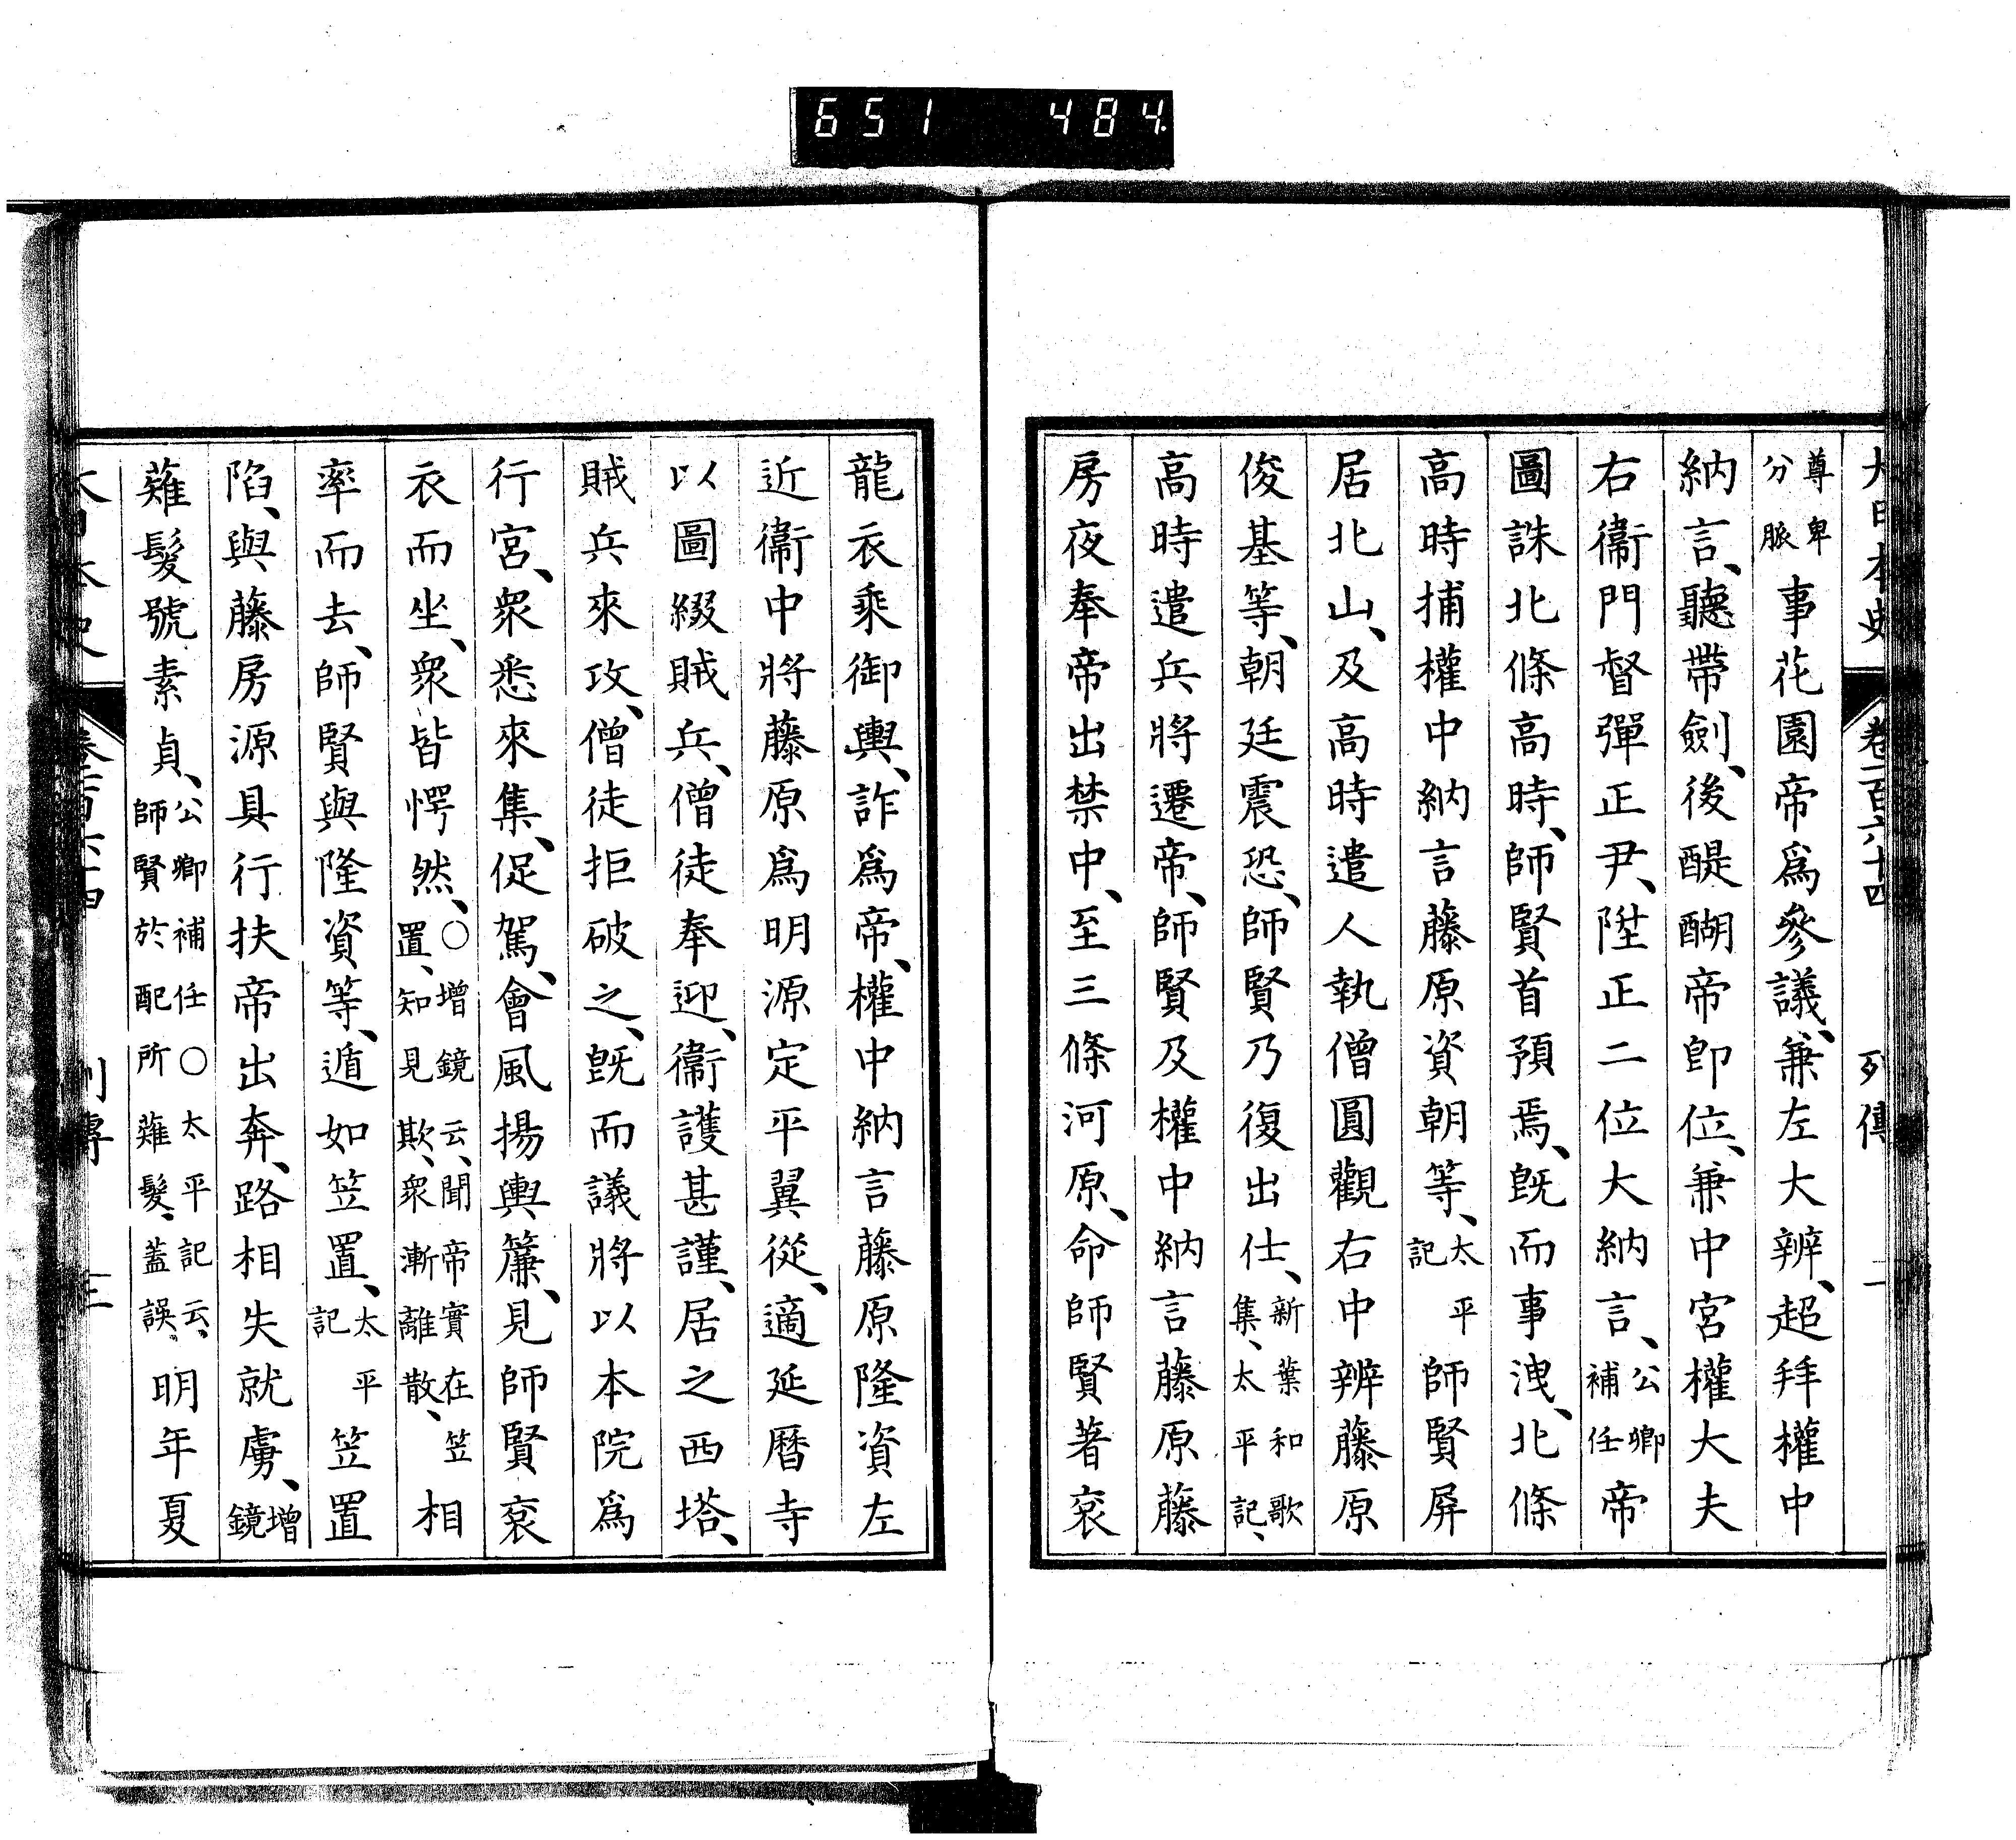 651 484.
大日本史 卷一百六十四 列傳
尊卑分脈事花園帝爲參議、兼左大辨、超拜權中
納言、聽帶劍、後醍醐帝卽位、兼中宮權大夫
右衞門督彈正尹、陞正二位大納言、公卿補任帝
圖誅北條高時、師賢首預焉、旣而事洩、北條
高時捕權中納言藤原資朝等、太平記師賢屏
居北山、及高時遣人執僧圓觀右中辨藤原
俊基等、朝廷震恐、師賢乃復出仕、新葉和歌集、太平記、
高時遣兵將遷帝、師賢及權中納言藤原藤
房夜奉帝出禁中、至三條河原、命師賢著袞
龍衣乘御輿、詐爲帝、權中納言藤原隆資左
近衞中將藤原爲明源定平翼從、適延曆寺
以圖綴賊兵、僧徒奉迎、衞護甚謹、居之西塔、
賊兵來攻、僧徒拒破之、旣而議將以本院爲
行宮、衆悉來集、促駕、會風揚輿簾、見師賢袞
衣而坐、衆皆愕然、○增鏡云、聞帝實在笠置、知見欺、衆漸離散、相
率而去、師賢與隆資等、遁如笠置、太平記笠置
陷、與藤房源具行扶帝出奔、路相失就虜、增鏡
薙髮號素貞、公卿補任○太平記云、師賢於配所薙髮、蓋誤、明年夏
卷一百六十四 列傳 三